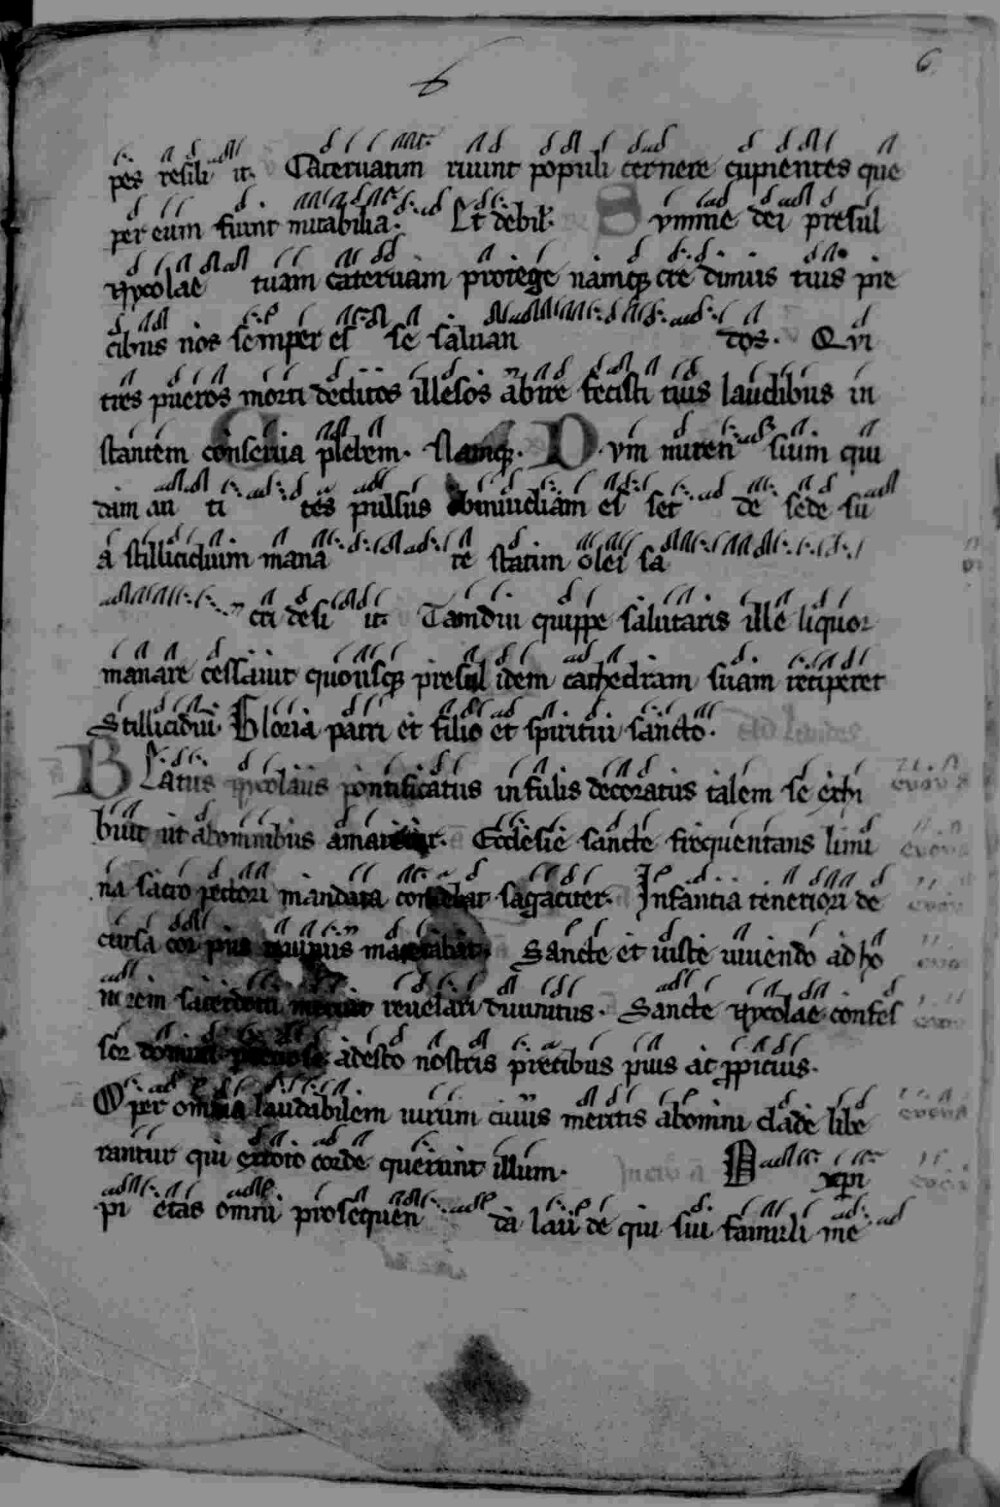 6 6
pes resili it. Cateruatim ruunt populi cernere cupientes que
per eum fiunt mirabilia. Et debil. Summe dei presul
nycolae tuam cateruam protege namq; cre dimus tuis pre
cibus nos semper es se saluan dos. Qui
tres pueros morti deditos illesos abire fecisti tuis laudibus in
stantem conserua plebem. Namq;. Dum uiren sium qui
dam an ti tes pulsus obinuidiam es set de sede su
a stillicidium mana re statim olei sa
cri desi it. Tamdiu quippe salutaris ille liquor
manare cessauit quousq; presul idem cathedram suam reciperet
Stillicidiu. Gloria patri et filio et spiritui sancto.
Beatus nycolaus pontificatus infulis decoratus talem se exhi
buit ut abomnibus amaretur. Ecclesie sancte frequentans limi
na sacro pectori mandata sagaciter. Infantia teneriori de
cursa Sancte et iuste uiuendo ad ho
norem reuelari diuinitus. Sancte nycolae confes
sor adesto nostris precibus pius ac ppicius.
O per omnia laudabilem uirum cuius meritis abomni clade libe
rantur qui extoto corde querunt illum. B xpi
pi etas omni prosequen da lau de qui sui famuli me